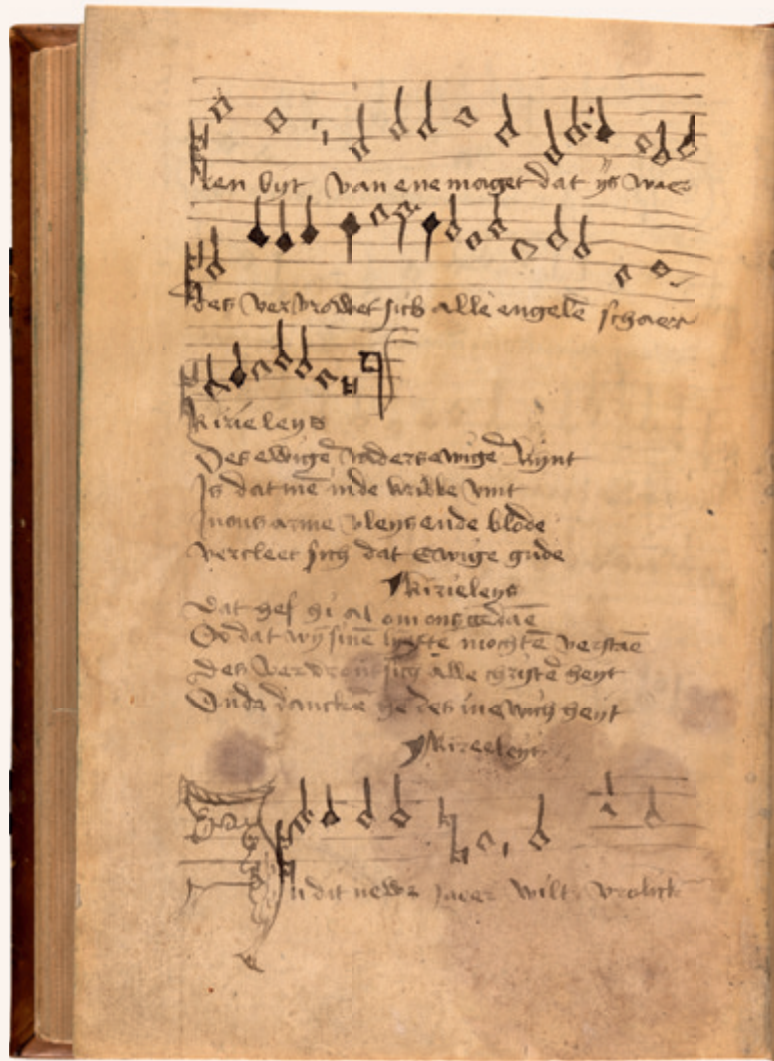 ren byt van ene maget dat ys waer
des vervrowet sich alle engelē schaer
kirieleys
Des ewigē vaders ewige kynt
Is datmē inde kribbe vint
In ons arme vleys ende blode
vercleet sich dat ewige gude
kirieleys
Dat hef hi al om ons gedaē
Op dat wy sine mochtē verstaē
Des sich alle christē heyt
danckē des inewich heyt
kireeleys
In dit newe Jaer wilt vrolick